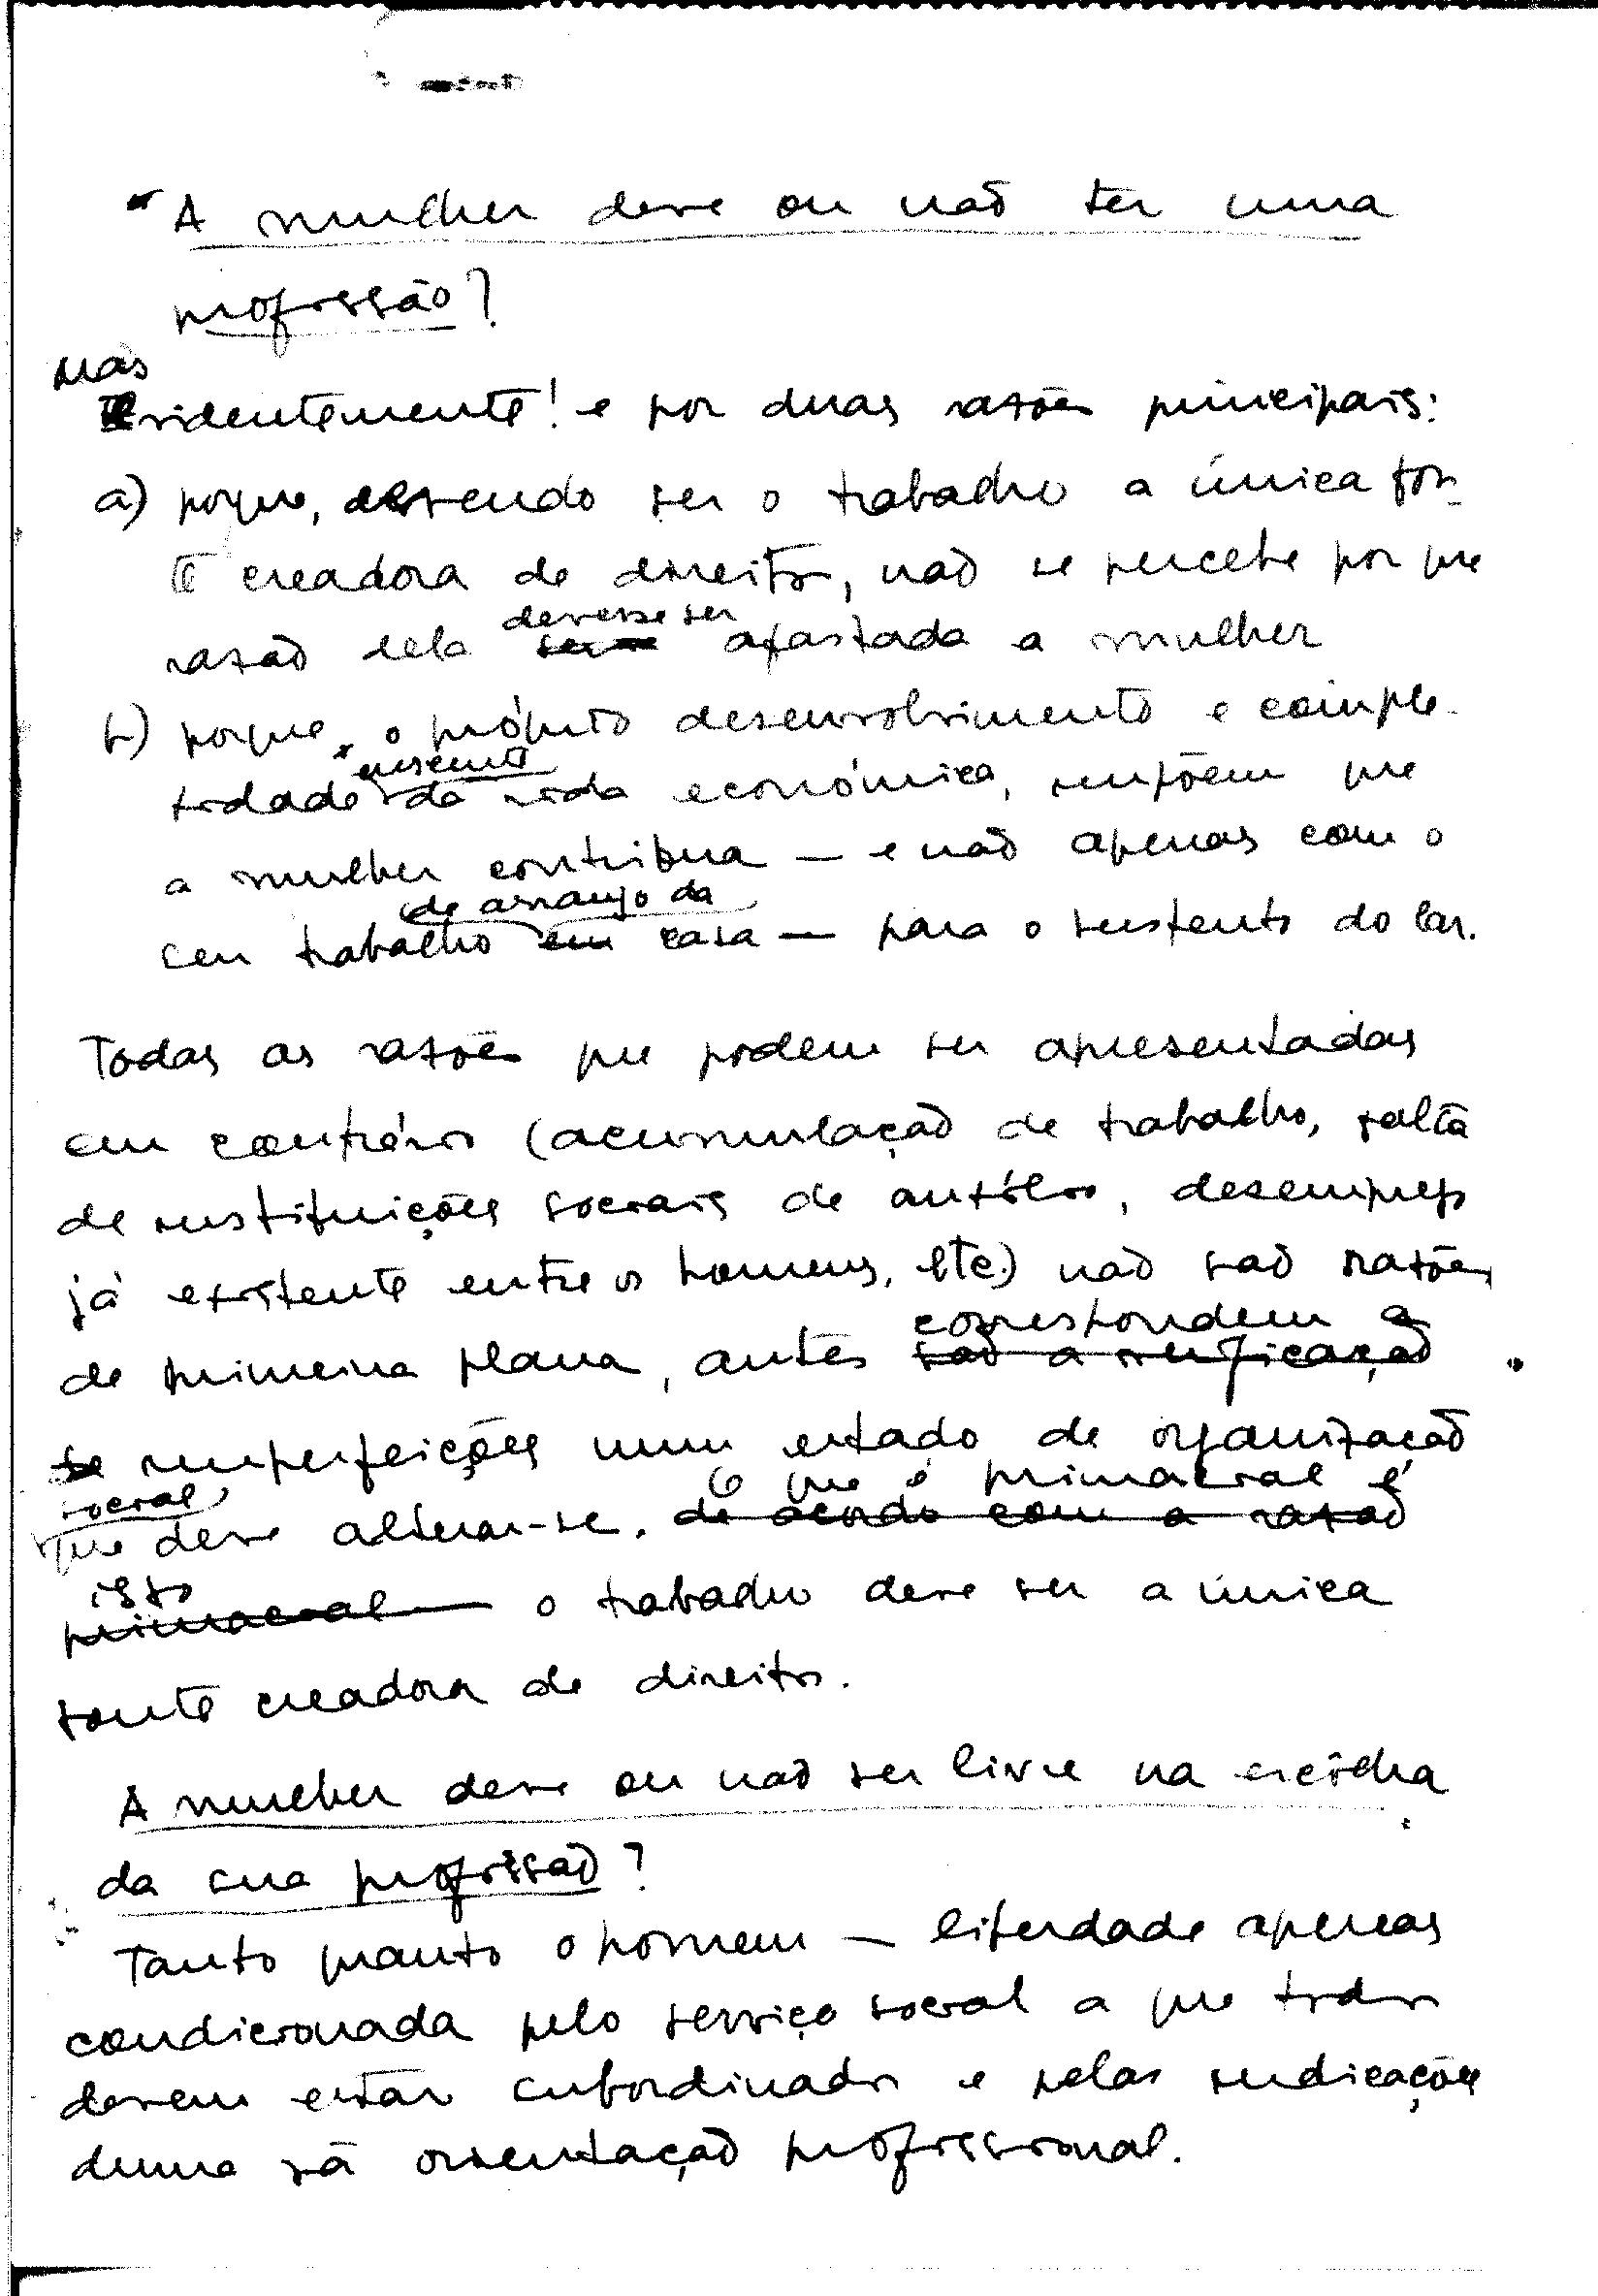 A mulher deve ou não ter uma
profissão?
Mas
Evidentemente! e por duas razões principais:
a) porque, devendo ser o trabalho a única fon-
te creadora de direitos, não se percebe por que
devesse ser
razão dela afastada a mulher
b) porque, o próprio desenvolvimento e comple-
xidade da vida económica, impõem que
a mulher contribua — e não apenas com o
de arranjo da
seu trabalho em casa — para o sustento do lar.
Todas as razões que podem ser apresentadas
em contrário (acumulação de trabalho, falta
de instituições sociais de auxílio, desemprego
já existente entre os homens, etc.) não são razões
correspondem a
de primeira plana, antes são a
imperfeições num estado de organização
social, O que é primacial é
que deve alterar-se. de acordo com a razão
isto
primacial — o trabalho deve ser a única
fonte creadora de direitos.
A mulher deve ou não ser livre na escôlha
da sua profissão?
Tanto quanto o homem — liberdade apenas
condicionada pelo serviço social a que todos
devem estar subordinados e pelas indicações
duma sã orientação profissional.